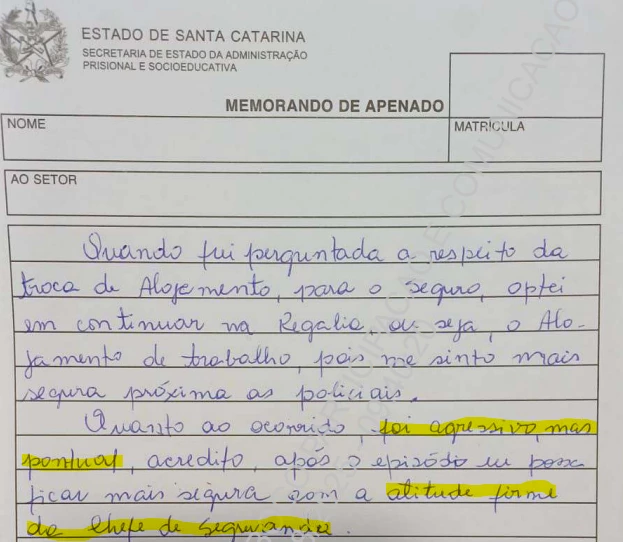 ESTADO DE SANTA CATARINA
SECRETARIA DE ESTADO DA ADMINISTRAÇÃO
PRISIONAL E SOCIOEDUCATIVA
MEMORANDO DE APENADO
NOME
MATRÍCULA
AO SETOR
Quando fui perguntada a respeito da
troca de Alojemento, para o seguro, optei
em continuar na Regalia, ou seja, o Alo-
jamento de trabalho, pois me sinto mais
segura próxima as policiais.
Quanto ao ocorrido, foi agressivo, mas
pontual, acredito, após o episódio eu possa
ficar mais segura com a atitude firme
da Chefe de